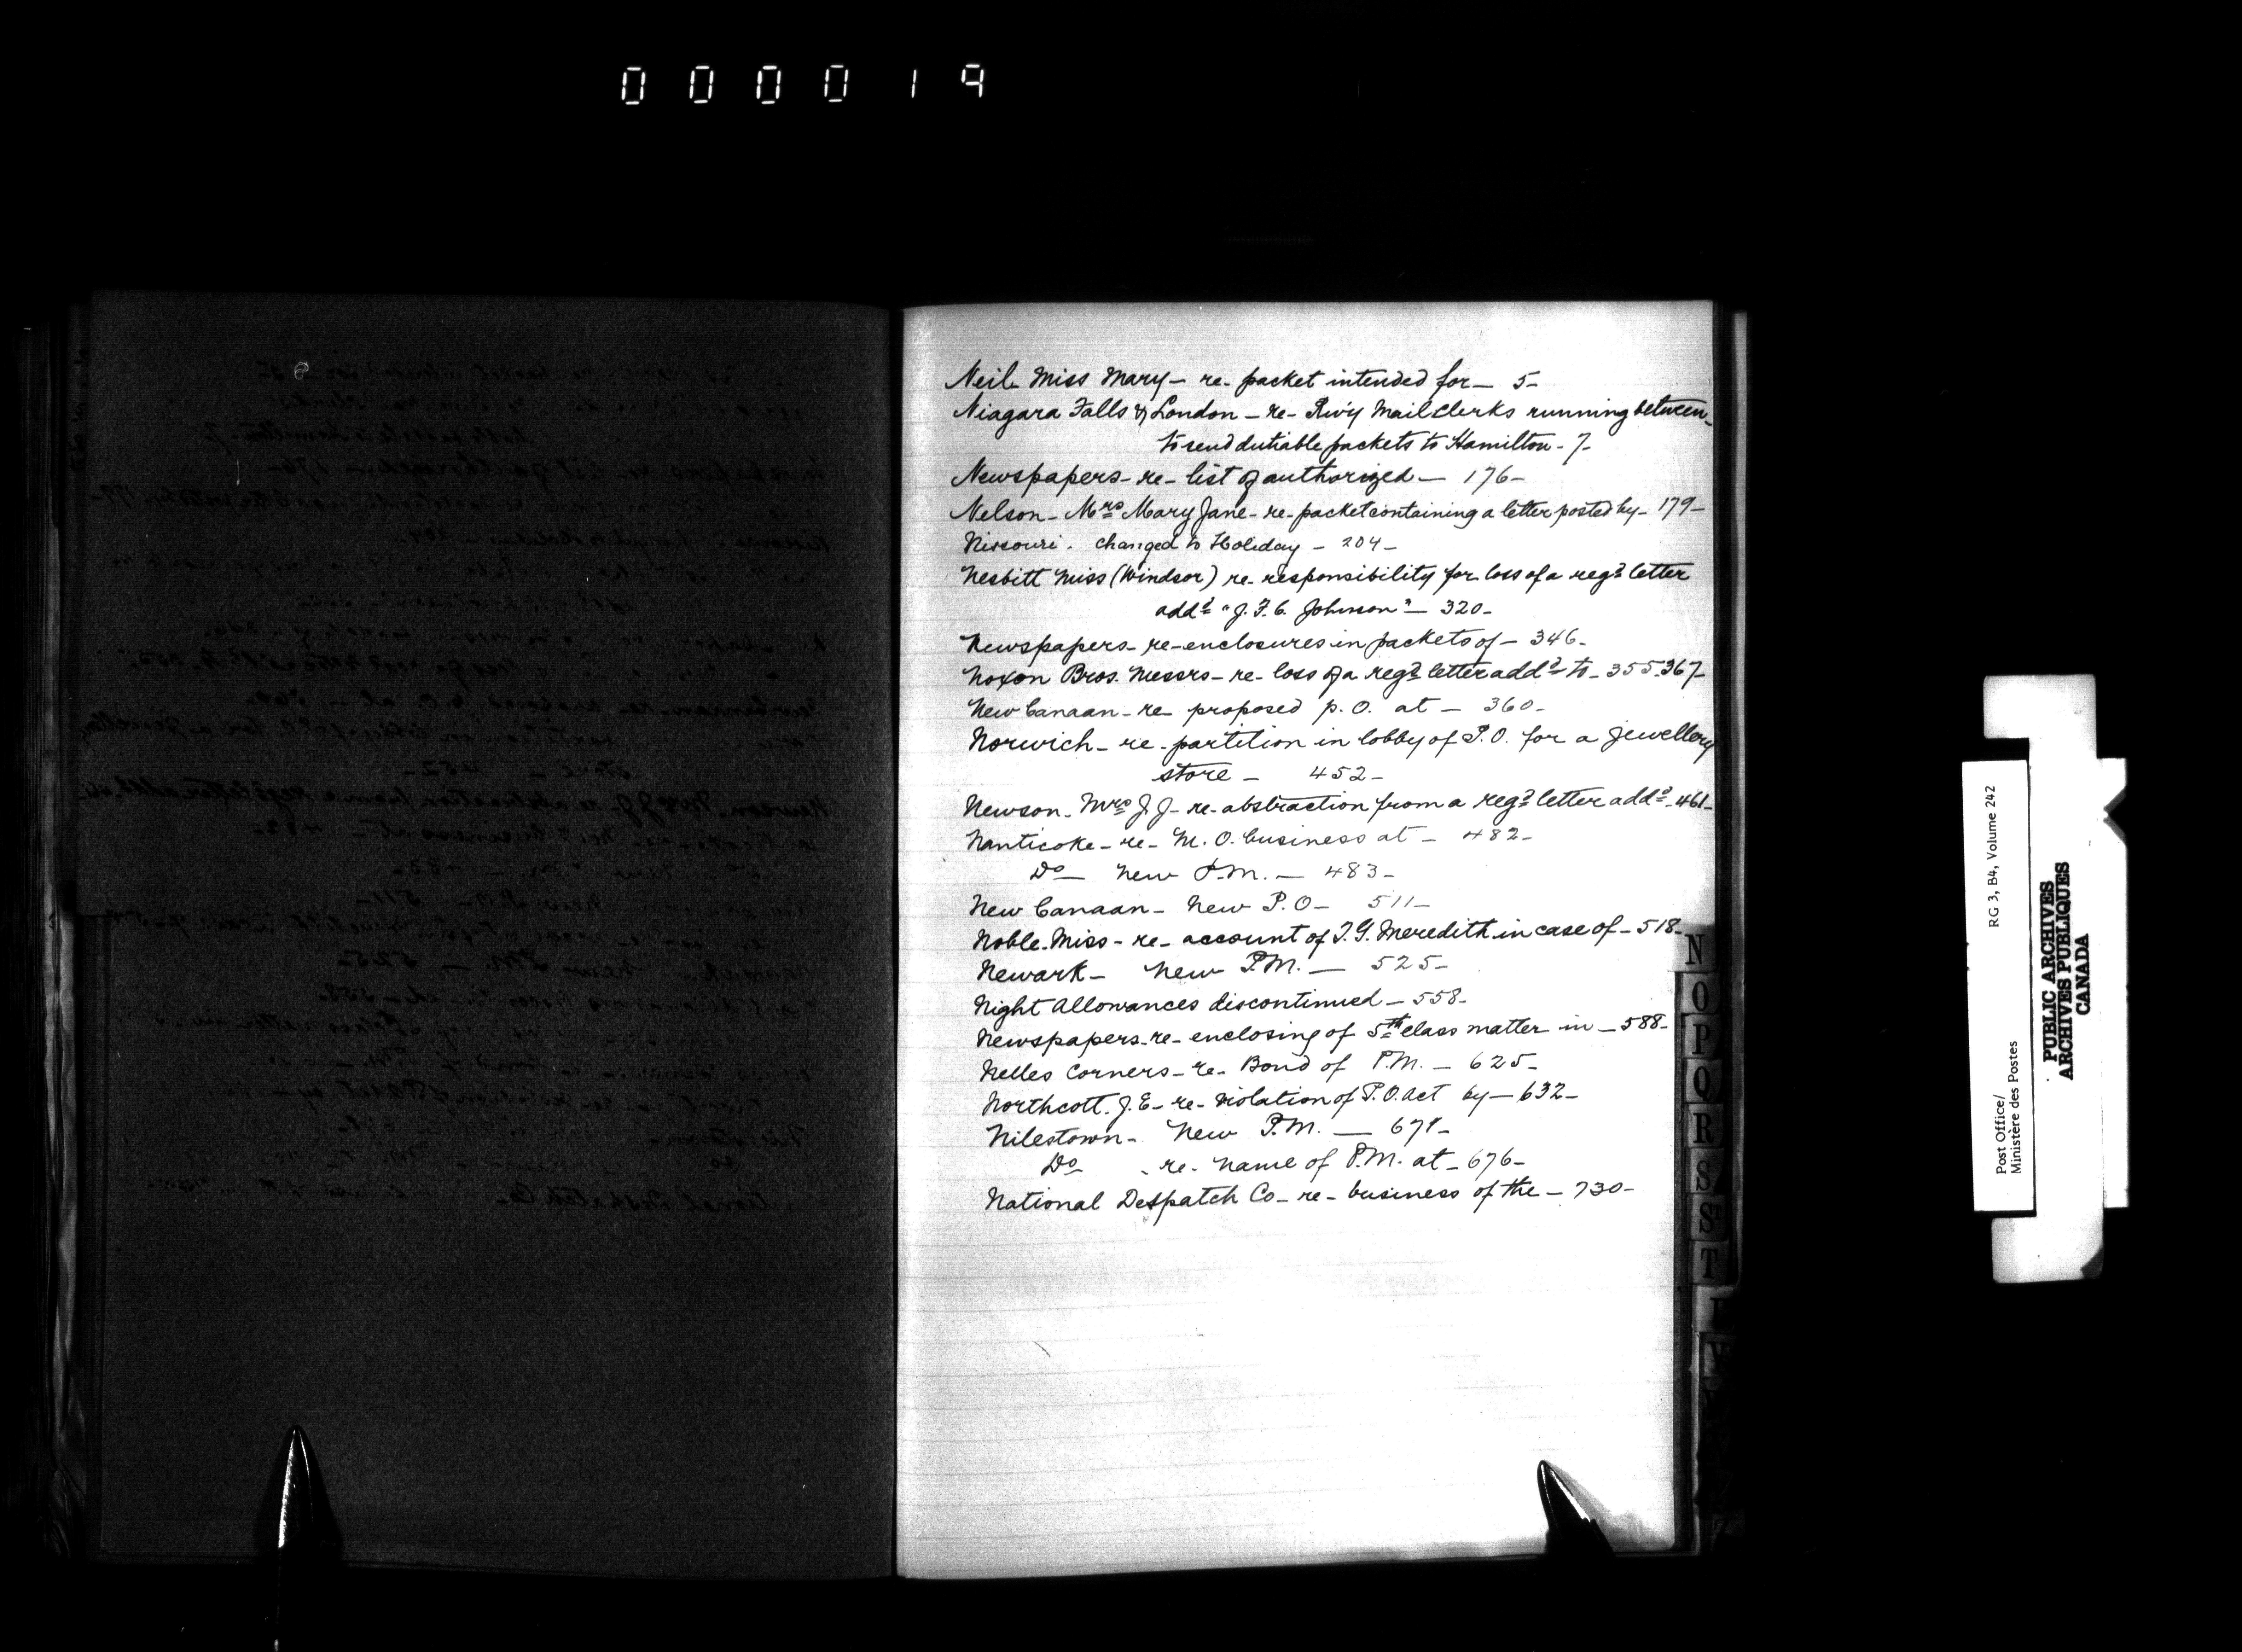 000019
Neil Miss Mary - re- packet intended for - 5-
Niagara Falls & London - re- Rwy Mail Clerks running between -
to send dutiable packets to Hamilton - 7-
Newspapers - re- list of authorized - 176-
Nelson - Mrs Mary Jane - re- packet containing a letter posted by - 179-
Nissouri. changed to Holiday - 204-
Nesbitt Miss (Windsor) re- responsibility for loss of a regd letter
addd "J. F. C. Johnson" - 320-
Newspapers - re- enclosures in packets of - 346-
Noxon Bros. Messrs - re- loss of a regd letter addd to - 355-367-
New Canaan - re- proposed P. O. at - 360-
Norwich - re- partition in lobby of P.O. for a jewellery
store - 452-
Newson - Mrs J. J- re- abstraction from a regd letter addd - 461-
Nanticoke - re- M. O. business at - 482-
Do - New P.M. - 483-
New Canaan - New P.O - 511-
Noble. Miss - re- account of T. G. Meredith in case of - 518-
Newark - New P.M. - 525-
Night Allowances discontinued - 558-
Newspapers - re- enclosing of 5th class matter in - 588-
Nelles Corners - re- Bond of P.M. - 625-
Northcott. J. E- re- violation of P.O. Act by - 632-
Nilestown - New P.M. - 671-
Do - re- name of P.M. at - 676-
National Despatch Co - re- business of the - 730-
N
O
P
Q
R
S
S
T
Post Office/ RG 3, B4, Volume 242
Ministère des Postes
PUBLIC ARCHIVES
ARCHIVES PUBLIQUES
CANADA